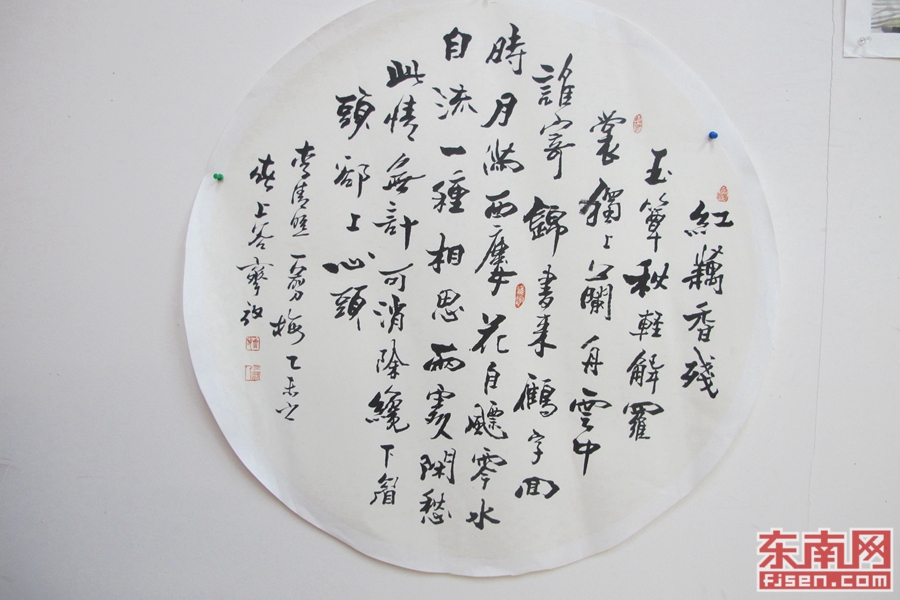 紅藕香殘
玉簟秋輕解羅
裳獨上蘭舟雲中
誰寄錦書來鴈字回
時月滿西樓花自飄零水
自流一種相思兩處閑愁
此情無計可消除纔下眉
頭卻上心頭
李清照一剪梅乙未之
春上谷
东南网
fjsen.com